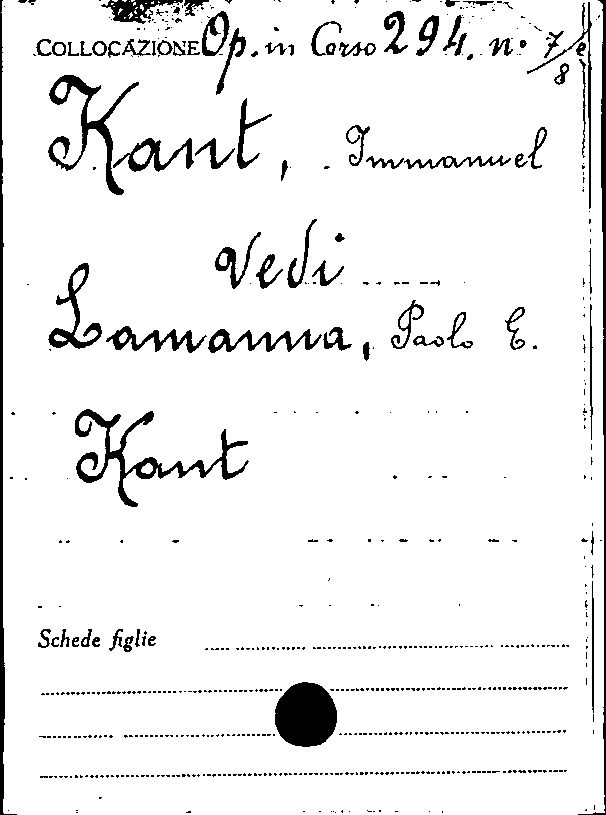 COLLOCAZIONE Op. in Corso 294. n° 7/8
Kant, Immanuel
Vedi
Lamanna, Paolo E.
Kant
Schede figlie